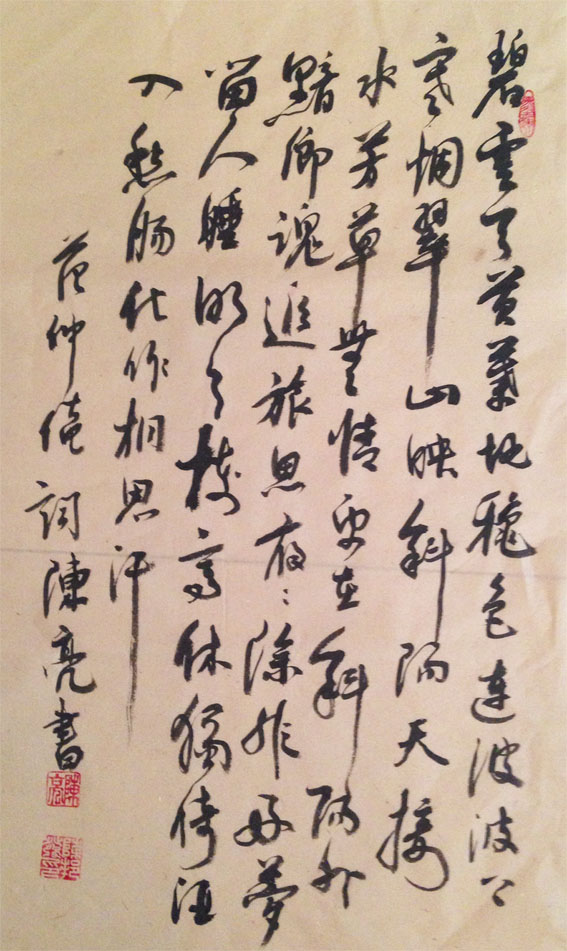 碧雲天黄葉地穐色連波波上
寒烟翠山映斜陽天接
水芳草無情更在斜陽外
黯鄉魂追旅思夜〻除非好夢
留人睡明月楼高休獨倚酒
入愁腸化作相思汗
范仲淹詞陳亮書
陳亮